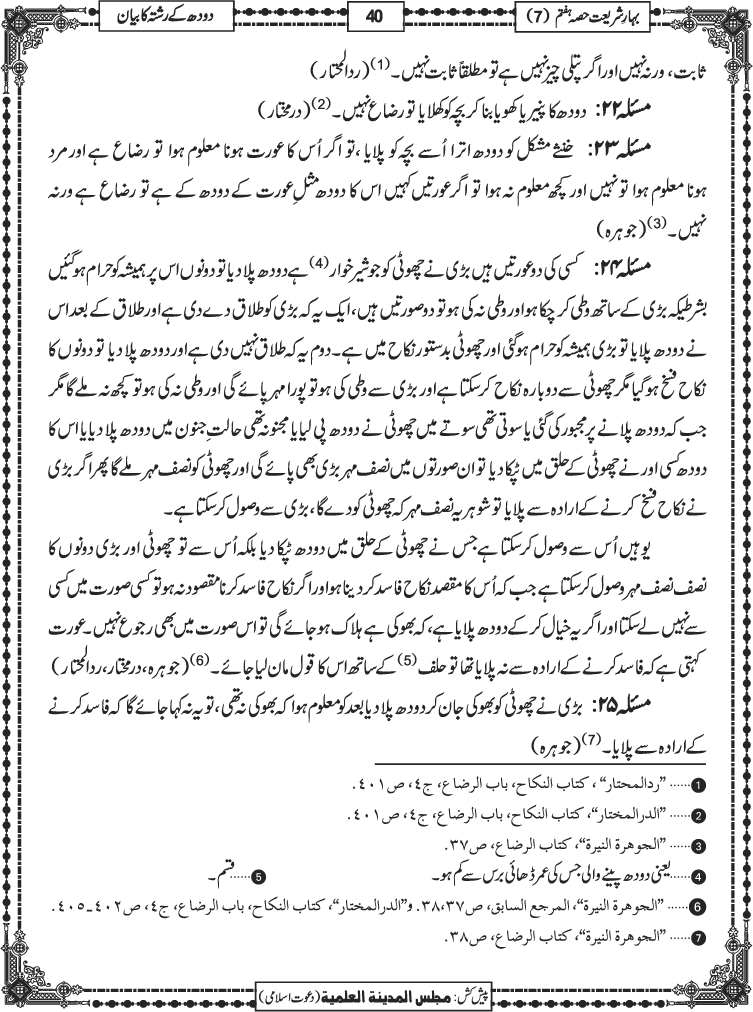 بہارِ شریعت حصہ ہفتم (7)
40
دودھ کے رشتہ کا بیان
ثابت، ورنہ نہیں اور اگر پتلی چیز نہیں ہے تو مطلقاً ثابت نہیں۔(1) (ردالمحتار)
مسئلہ ۲۲: دودھ کا پنیر یا کھویا بنا کر بچہ کو کھلایا تو رضاع نہیں۔(2) (درمختار)
مسئلہ ۲۳: خنثےٰ مشکل کو دودھ اترا اُسے بچہ کو پلایا ،تو اگر اُس کا عورت ہونا معلوم ہوا تو رضاع ہے اور مرد
ہونا معلوم ہوا تو نہیں اور کچھ معلوم نہ ہوا تو اگر عورتیں کہیں اس کا دودھ مثلِ عورت کے دودھ کے ہے تو رضاع ہے ورنہ
نہیں۔(3) (جوہرہ)
مسئلہ ۲۴: کسی کی دو عورتیں ہیں بڑی نے چھوٹی کو جو شیر خوار(4) ہے دودھ پلا دیا تو دونوں اس پر ہمیشہ کو حرام ہوگئیں
بشرطیکہ بڑی کے ساتھ وطی کر چکا ہو اور وطی نہ کی ہو تو دو صورتیں ہیں، ایک یہ کہ بڑی کو طلاق دے دی ہے اور طلاق کے بعد اس
نے دودھ پلایا تو بڑی ہمیشہ کو حرام ہوگئی اور چھوٹی بدستور نکاح میں ہے۔ دوم یہ کہ طلاق نہیں دی ہے اور دودھ پلا دیا تو دونوں کا
نکاح فسخ ہوگیا مگر چھوٹی سے دوبارہ نکاح کرسکتا ہے اور بڑی سے وطی کی ہو تو پورا مہر پائے گی اور وطی نہ کی ہو تو کچھ نہ ملے گا مگر
جب کہ دودھ پلانے پر مجبور کی گئی یا سوتی تھی سوتے میں چھوٹی نے دودھ پی لیا یا مجنونہ تھی حالتِ جنون میں دودھ پلا دیا یا اس کا
دودھ کسی اور نے چھوٹی کے حلق میں ٹپکا دیا تو ان صورتوں میں نصف مہر بڑی بھی پائے گی اور چھوٹی کو نصف مہر ملے گا پھر اگر بڑی
نے نکاح فسخ کرنے کے ارادہ سے پلایا تو شوہر یہ نصف مہر کہ چھوٹی کو دے گا، بڑی سے وصول کرسکتا ہے۔
یوہیں اُس سے وصول کرسکتا ہے جس نے چھوٹی کے حلق میں دودھ ٹپکا دیا بلکہ اُس سے تو چھوٹی اور بڑی دونوں کا
نصف نصف مہر وصول کرسکتا ہے جب کہ اُس کا مقصد نکاح فاسد کر دینا ہو اور اگر نکاح فاسد کرنا مقصود نہ ہو تو کسی صورت میں کسی
سے نہیں لے سکتا اور اگر یہ خیال کرکے دودھ پلایا ہے، کہ بھوکی ہے ہلاک ہوجائے گی تو اس صورت میں بھی رجوع نہیں۔ عورت
کہتی ہے کہ فاسد کرنے کے ارادہ سے نہ پلایا تھا تو حلف(5) کے ساتھ اس کا قول مان لیا جائے۔(6) (جوہرہ، درمختار، ردالمحتار)
مسئلہ ۲۵: بڑی نے چھوٹی کو بھوکی جان کر دودھ پلا دیا بعد کو معلوم ہوا کہ بھوکی نہ تھی، تو یہ نہ کہا جائے گا کہ فاسد کرنے
کے ارادہ سے پلایا۔(7) (جوہرہ)
1 ......"ردالمحتار"، کتاب النکاح، باب الرضاع، ج٤، ص٤٠١.
2 ......"الدرالمختار"، کتاب النکاح، باب الرضاع، ج٤، ص٤٠١.
3 ......"الجوھرۃ النیرۃ"، کتاب الرضاع، ص٣٧.
4 ......یعنی دودھ پینے والی جس کی عمر ڈھائی برس سے کم ہو۔ 5 ......قسم۔
6 ......"الجوھرۃ النیرۃ"، المرجع السابق، ص٣٧،٣٨. و"الدرالمختار"، کتاب النکاح، باب الرضاع، ج٤، ص٤٠٢-٤٠٥.
7 ......"الجوھرۃ النیرۃ"، کتاب الرضاع، ص٣٨.
پیش کش: مجلس المدینة العلمیة (دعوت اسلامی)